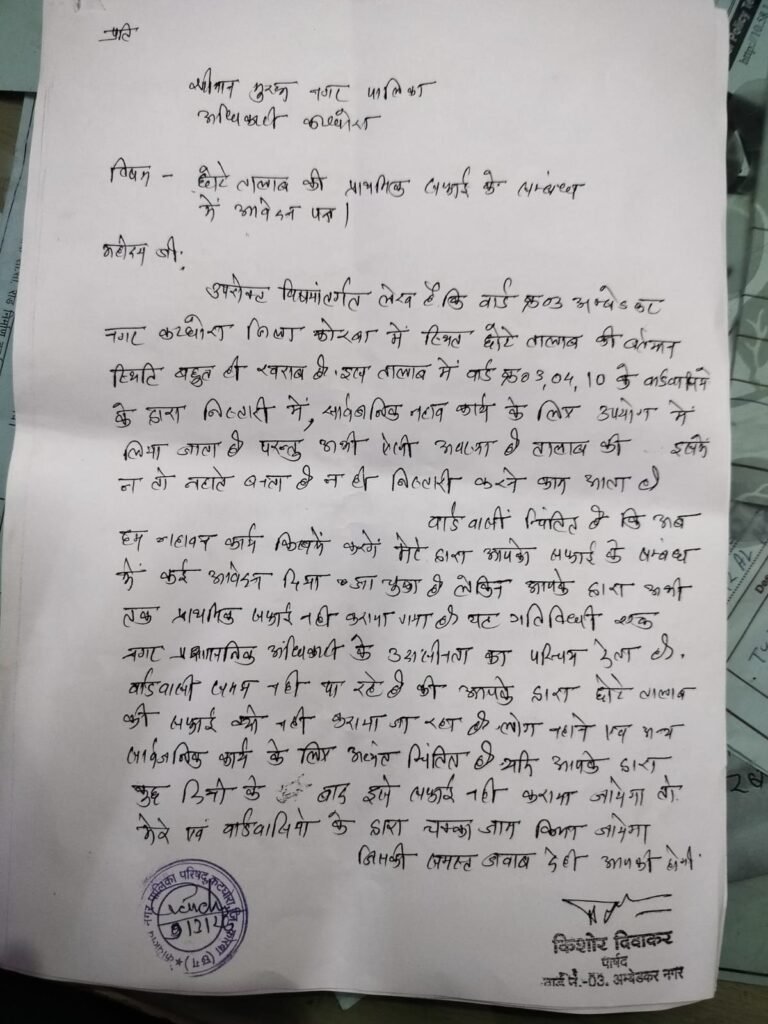 प्रति
श्रीमान मुख्य नगर पालिका
अधिकारी कटघोरा
विषय - छोटे तालाब की प्राथमिक सफाई के सम्बंध
में आवेदन पत्र।
महोदय जी:
उपरोक्त विषयांतर्गत लेख है कि वार्ड क्र०03 अम्बेडकर
नगर कटघोरा जिला कोरबा में स्थित छोटे तालाब की वर्तमान
स्थिति बहुत ही खराब है. इस तालाब में वार्ड क्र०3,04,10 के वार्डवासियो
के द्वारा निस्तारी में, सार्वजनिक नहाव कार्य के लिए उपयोग में
लिया जाता है परन्तु अभी ऐसी अवस्था है तालाब की इसमें
न तो नहाते बनता है न ही निस्तारी करने काम आता है
वार्डवासी चिंतित है कि अब
हम नहावन कार्य किसमें करेंगे मेरे द्वारा आपको सफाई के सम्बंध
में कई आवेदन दिया जा चुका है लेकिन आपके द्वारा अभी
तक प्राथमिक सफाई नही कराया गया है यह गतिविधी एक
नगर प्रशासनिक अधिकारी के उदासीनता का परिचय देता है.
वार्डवासी समझ नही पा रहे है की आपके द्वारा छोटे तालाब
की सफाई क्यो नही कराया जा रहा है लोग नहाने एवं अन्य
सार्वजनिक कार्य के लिए अत्यंत चिंतित है यदि आपके द्वारा
कुछ दिनो के बाद इसे सफाई नही कराया जायेगा तो.
मेरे एवं वार्डवासियो के द्वारा चक्का जाम किया जायेगा
जिसकी समस्त जवाब देही आपकी होगी.
कार्यालय नगर पालिका परिषद, कटघोरा जिला कोरबा (छ.ग.)
किशोर दिवाकर
पार्षद
वार्ड नं.-03. अम्बेडकर नगर